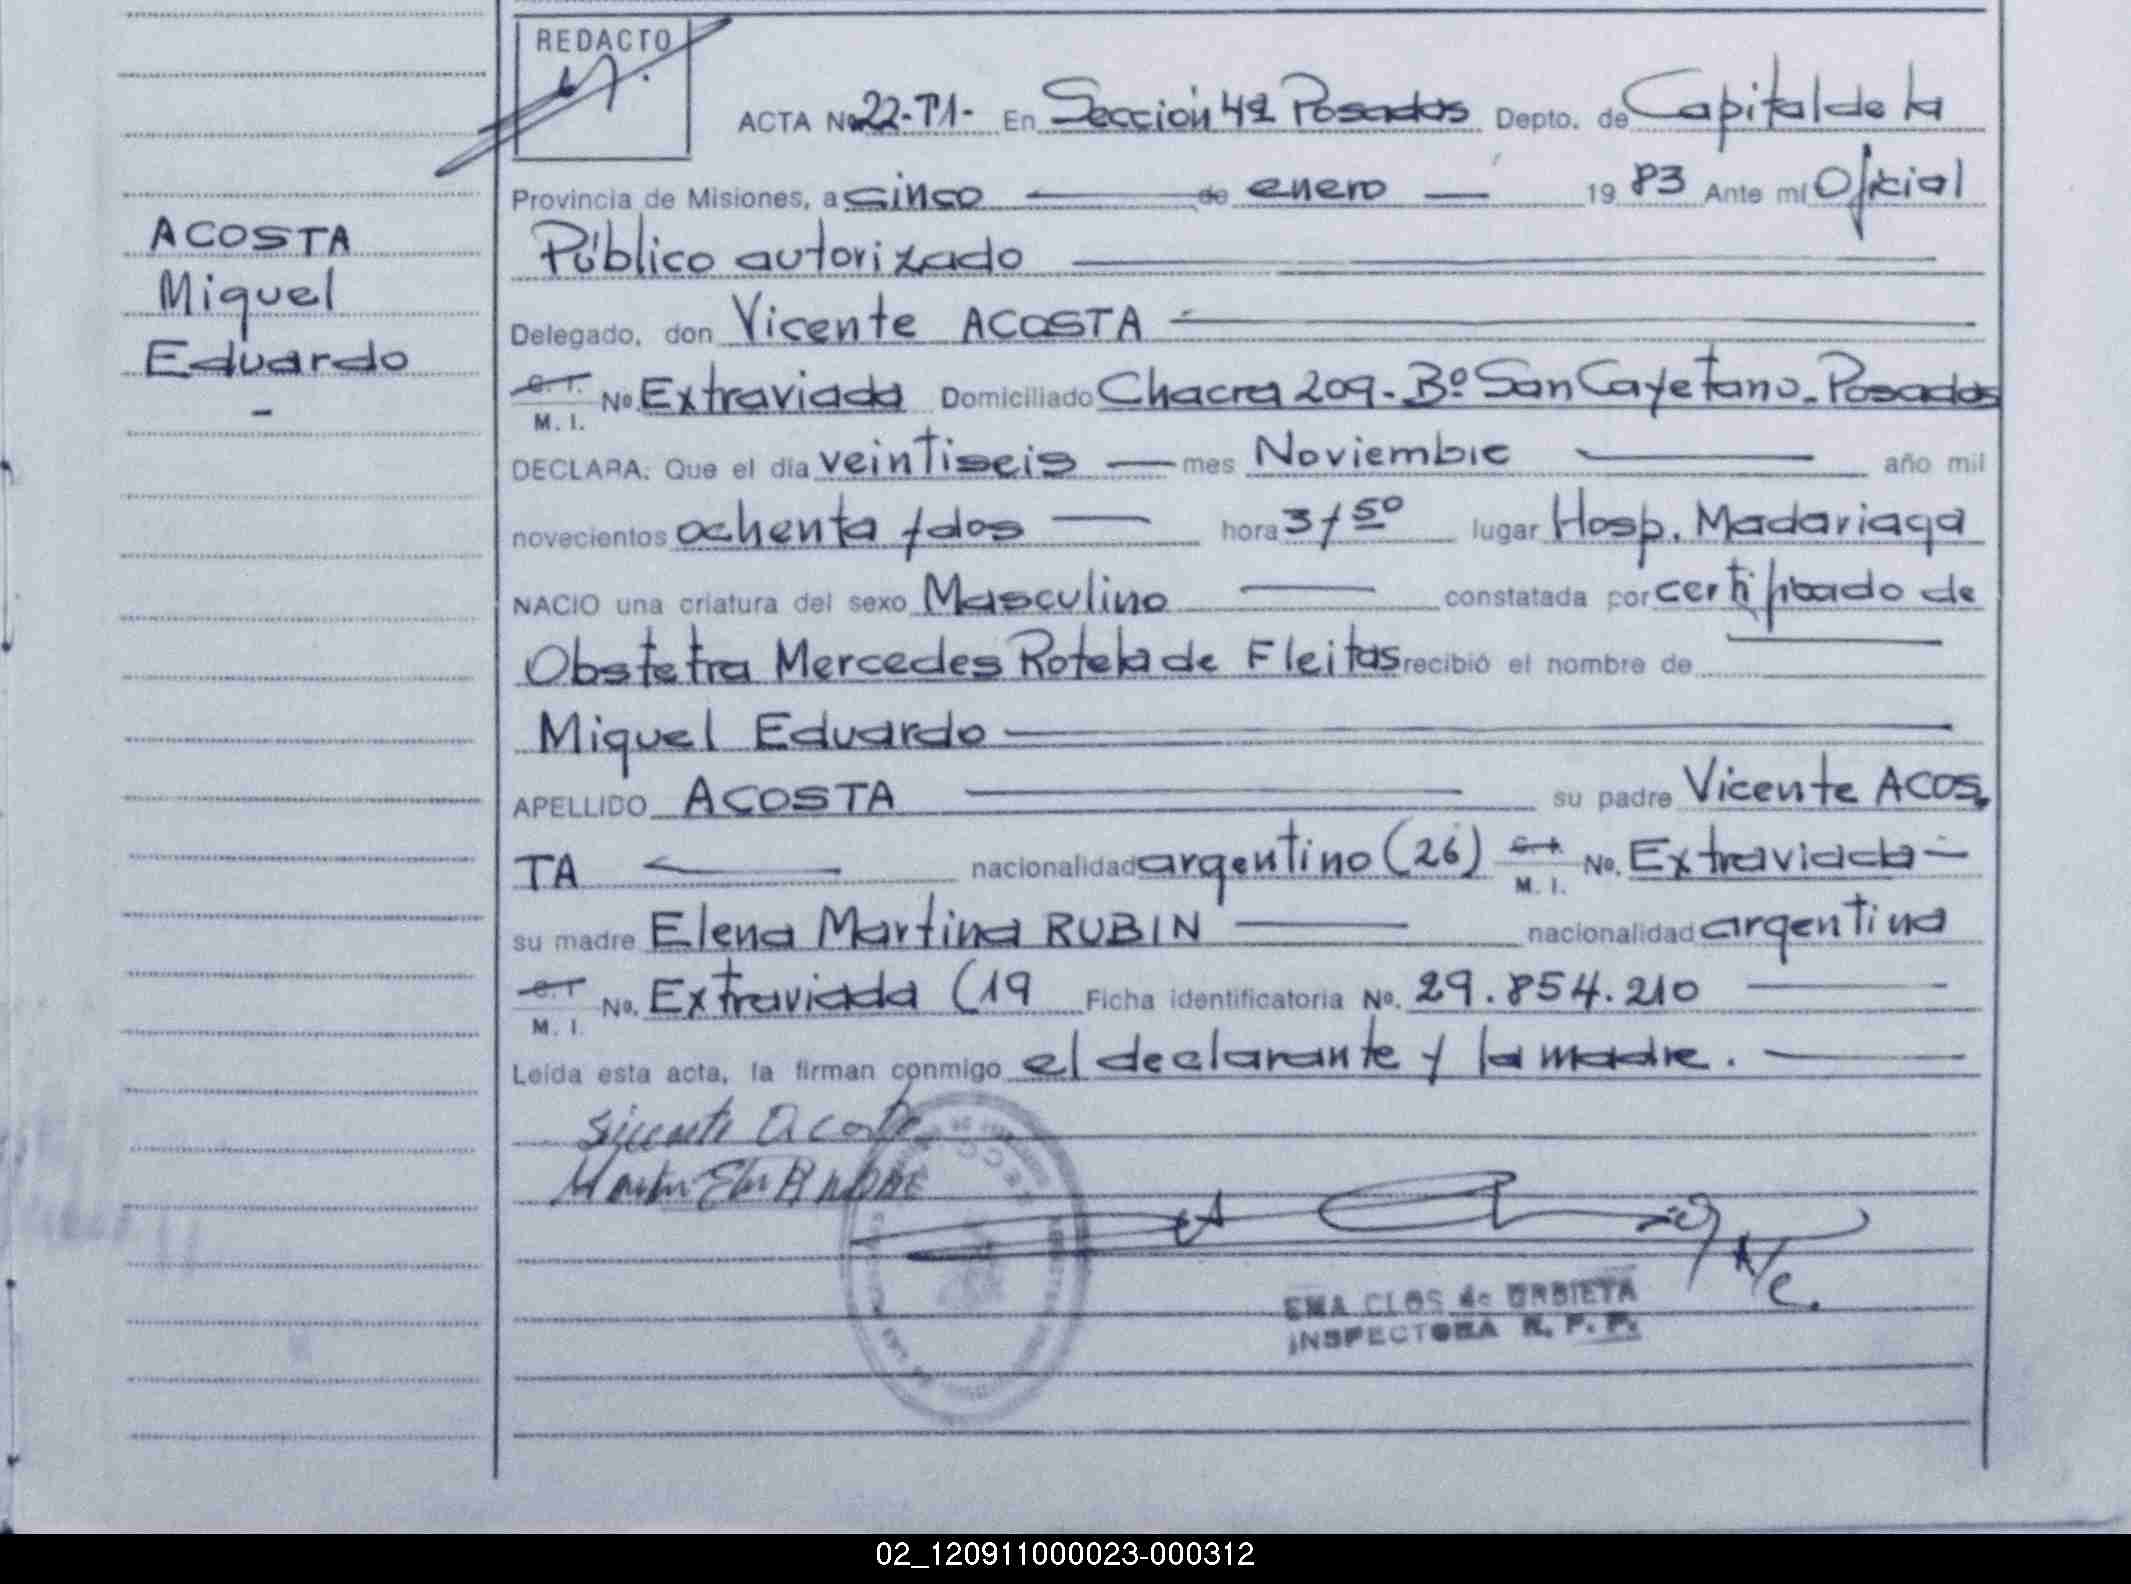 REDACTO
ACTA Nº 22-T1- En Sección 4ª Posadas Depto. de Capital de la
Provincia de Misiones, a cinco de enero 19 83 Ante mí Oficial
Público autorizado
Delegado, don Vicente ACOSTA
C. I. M. I. Nº Extraviada Domiciliado Chacra 209 - Bº San Cayetano - Posadas
DECLARA: Que el día veintiseis mes Noviembre año mil
novecientos ochenta y dos hora 3 y 50 lugar Hosp. Madariaga
NACIO una criatura del sexo Masculino constatada por certificado de
Obstetra Mercedes Rotela de Fleitas recibió el nombre de
Miguel Eduardo
APELLIDO ACOSTA su padre Vicente ACOS.
TA nacionalidad argentino (26) C. I. M. I. No. Extraviada
su madre Elena Martina RUBIN nacionalidad argentina
C. I. M. I. No. Extraviada (19 Ficha identificatoria Nº. 29.854.210
Leída esta acta, la firman conmigo el declarante y la madre.
ACOSTA
Miguel
Eduardo
-
A/C.
EMA CLOS de URBIETA
INSPECTORA R. P. P.
02_120911000023-000312